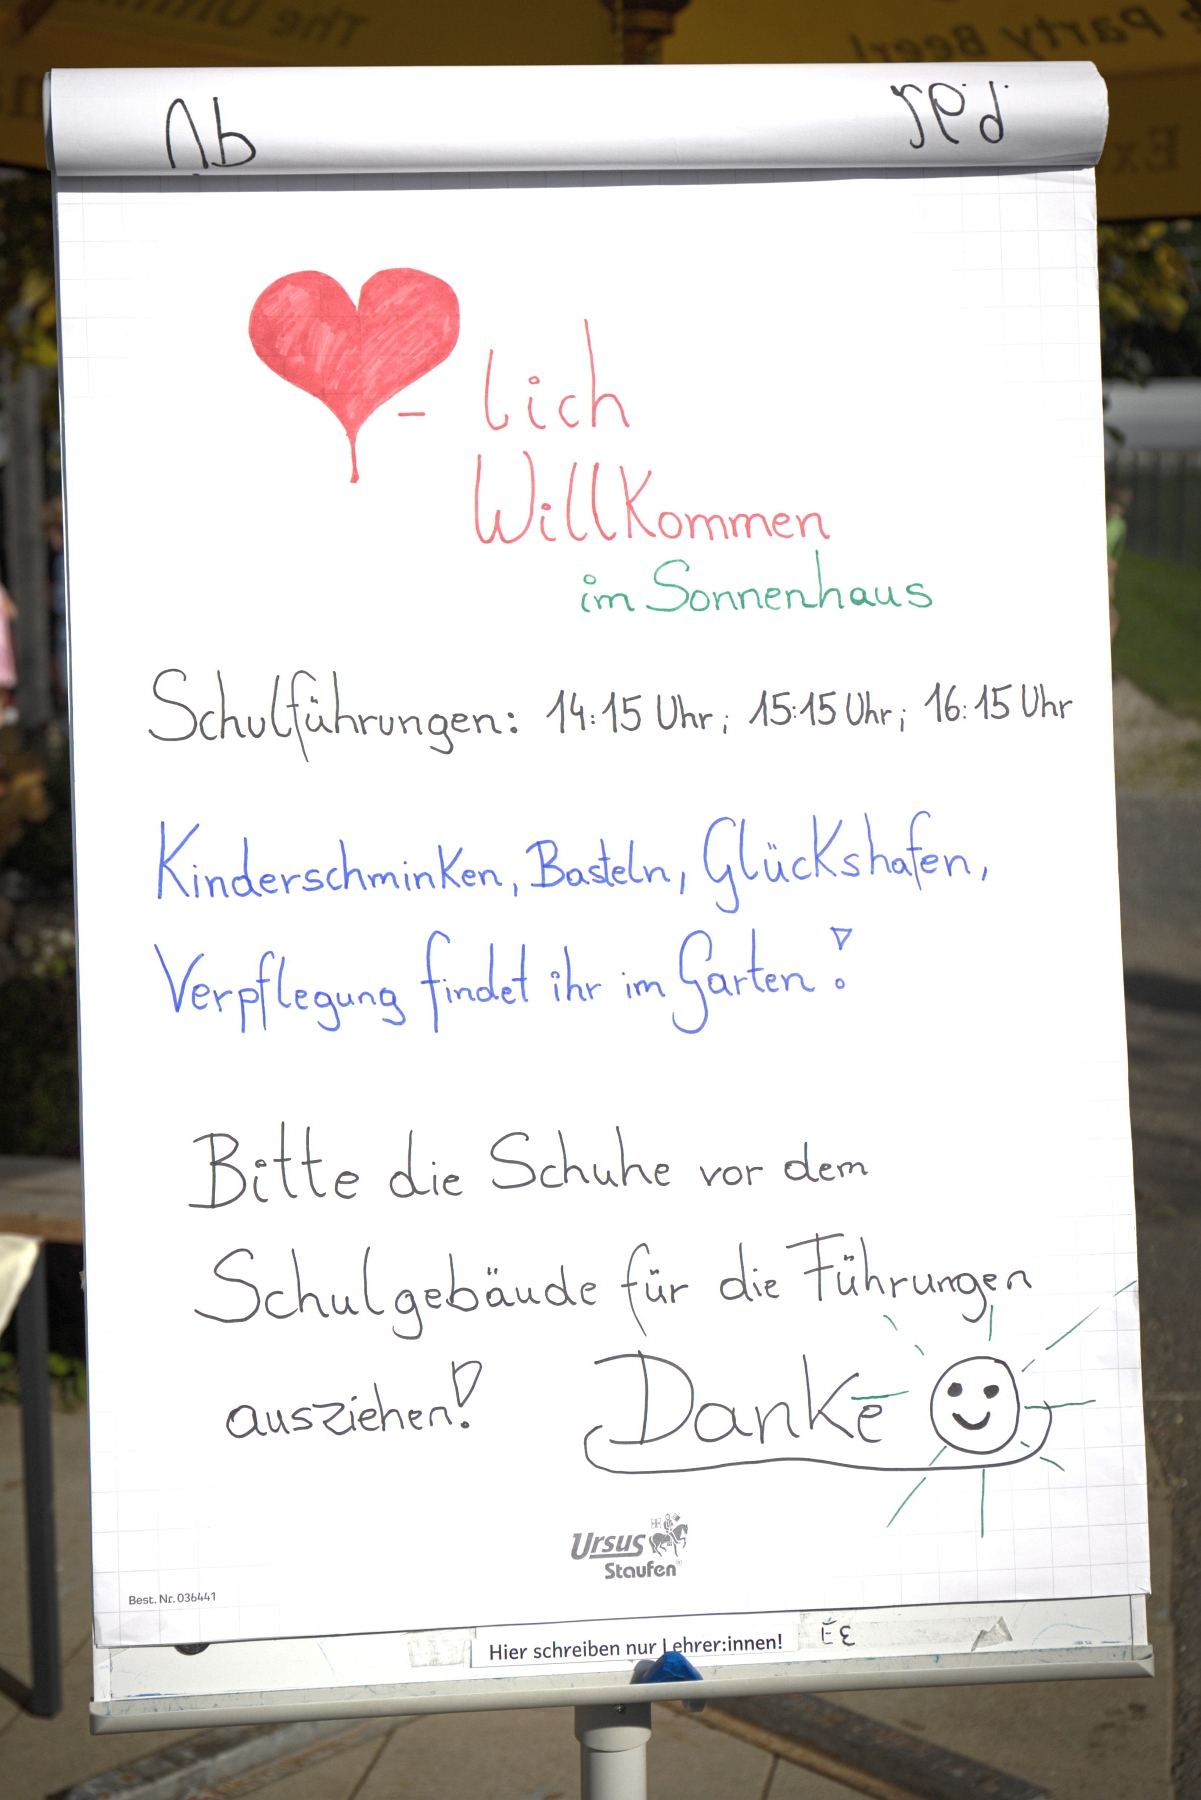 - lich
Willkommen
im Sonnenhaus
Schulführungen: 14:15 Uhr; 15:15 Uhr; 16:15 Uhr
Kinderschminken, Basteln, Glückshafen,
Verpflegung findet ihr im Garten!
Bitte die Schuhe vor dem
Schulgebäude für die Führungen
ausziehen!
Danke
Ursus
Staufen
Best. Nr. 036441
Hier schreiben nur Lehrer:innen!